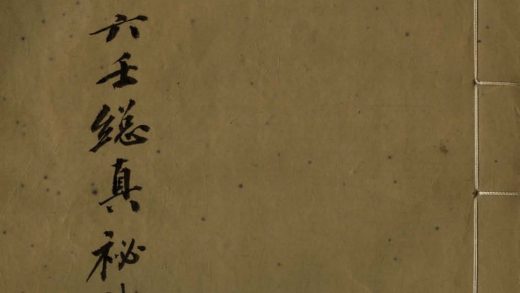 六壬総真秘